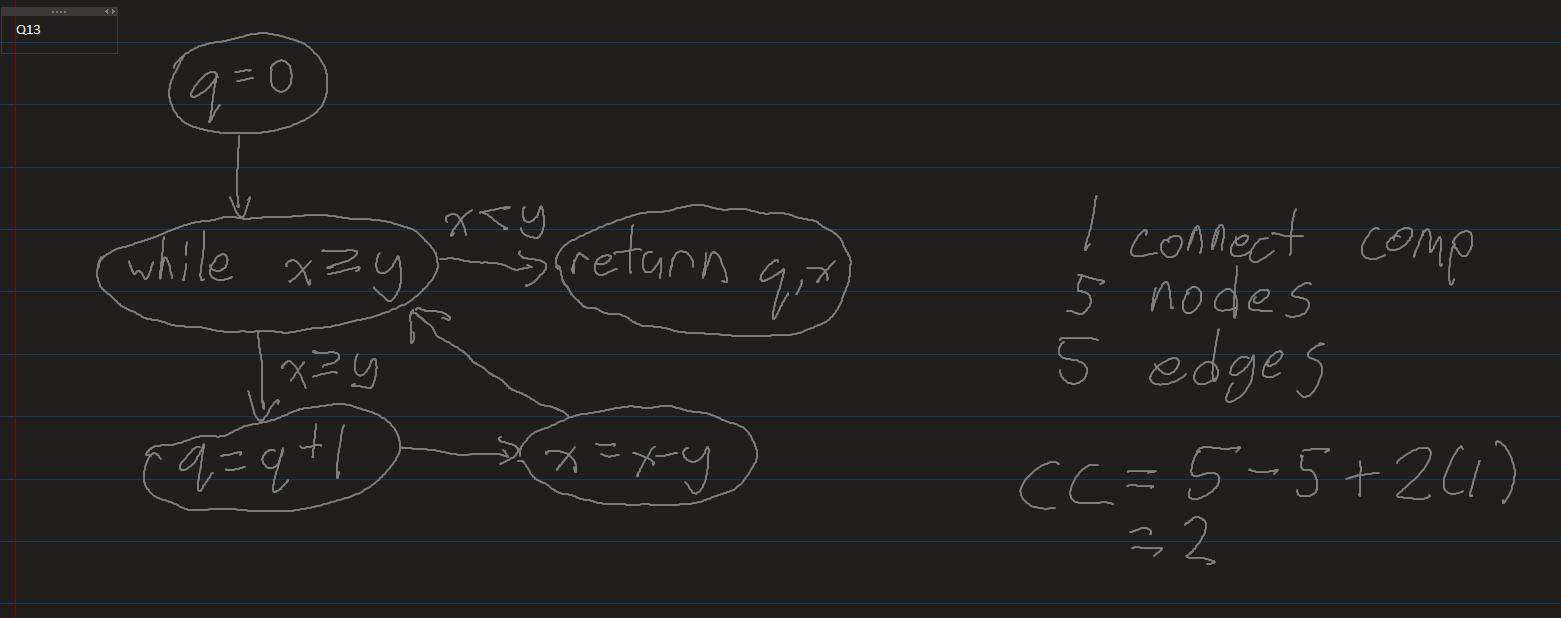 Q13
q = 0
while x ≥ y
x < y
return q, x
x ≥ y
q = q + 1
x = x - y
1 connect comp
5 nodes
5 edges
CC = 5 - 5 + 2(1)
= 2